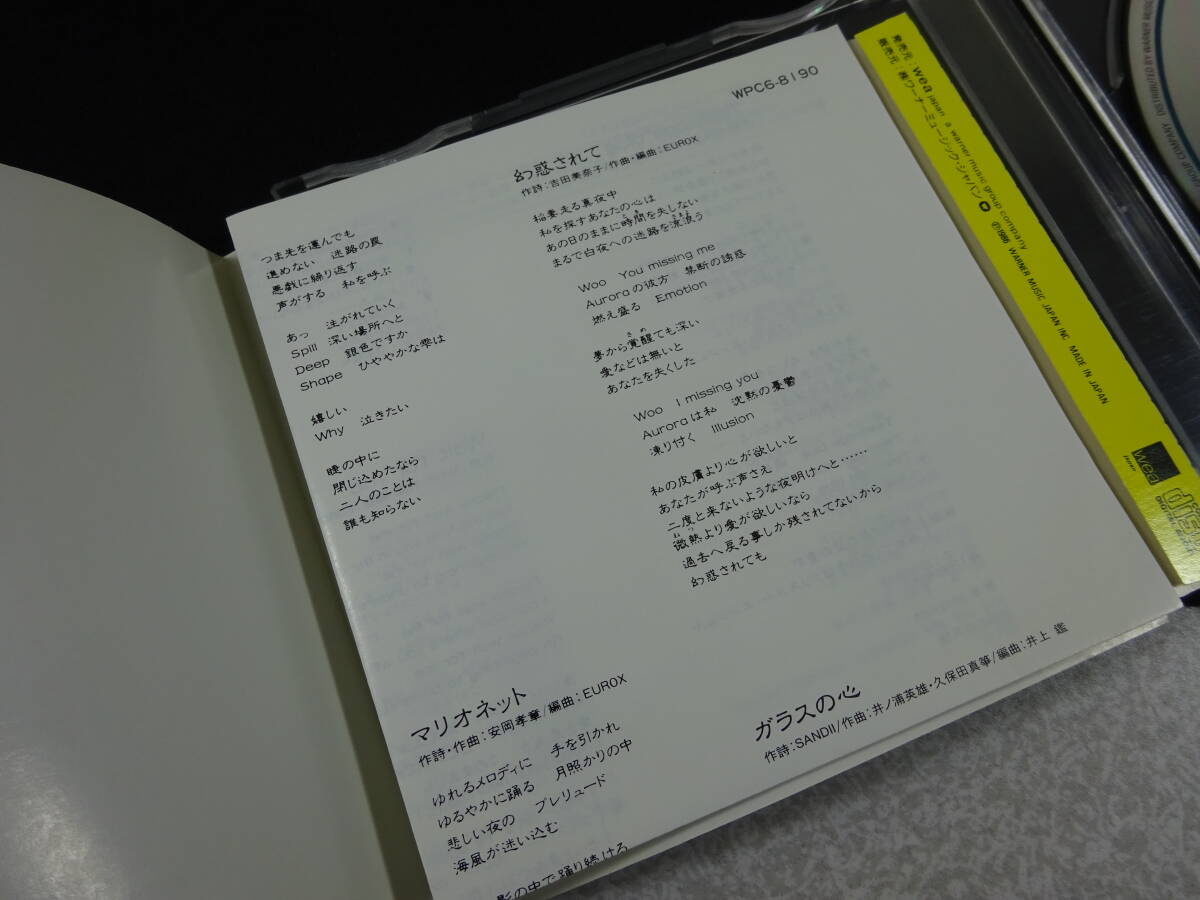 WPC6-8190
つま先を運んでも
進めない 迷路の罠
悪戯に繰り返す
声がする 私を呼ぶ
あっ 注がれていく
Spill 深い場所へと
Deep 銀色ですか
Shape ひややかな雫は
嬉しい
Why 泣きたい
瞳の中に
閉じ込めたなら
二人のことは
誰も知らない
マリオネット
作詩・作曲:安岡孝章/編曲:EUROX
ゆれるメロディに 手を引かれ
ゆるやかに踊る 月照かりの中
悲しい夜の プレリュード
海風が迷い込む
影の中で踊り続ける
幻惑されて
作詩:吉田美奈子/作曲・編曲:EUROX
稲妻走る真夜中
私を探すあなたの心は
あの日のままに時間を失しない
まるで白夜への迷路を流浪う
Woo You missing me
Auroraの彼方 禁断の誘惑
燃え盛る Emotion
夢から覚醒ても深い
愛などは無いと
あなたを失くした
Woo I missing you
Auroraは私 沈黙の憂鬱
凍り付く Illusion
私の皮膚より心が欲しいと
あなたが呼ぶ声さえ
二度と来ないような夜明けへと……
微熱より愛が欲しいなら
過去へ戻る事しか残されてないから
幻惑されても
ガラスの心
作詩:SANDII/作曲:井ノ浦英雄・久保田真箏/編曲:井上 鑑
発売元:wea japan a warner music group company
販売元:㈱ワーナーミュージック・ジャパン
℗1986 WARNER MUSIC JAPAN INC. MADE IN JAPAN
wea
JAPAN
GROUP COMPANY. DISTRIBUTED BY WARNER MUSIC